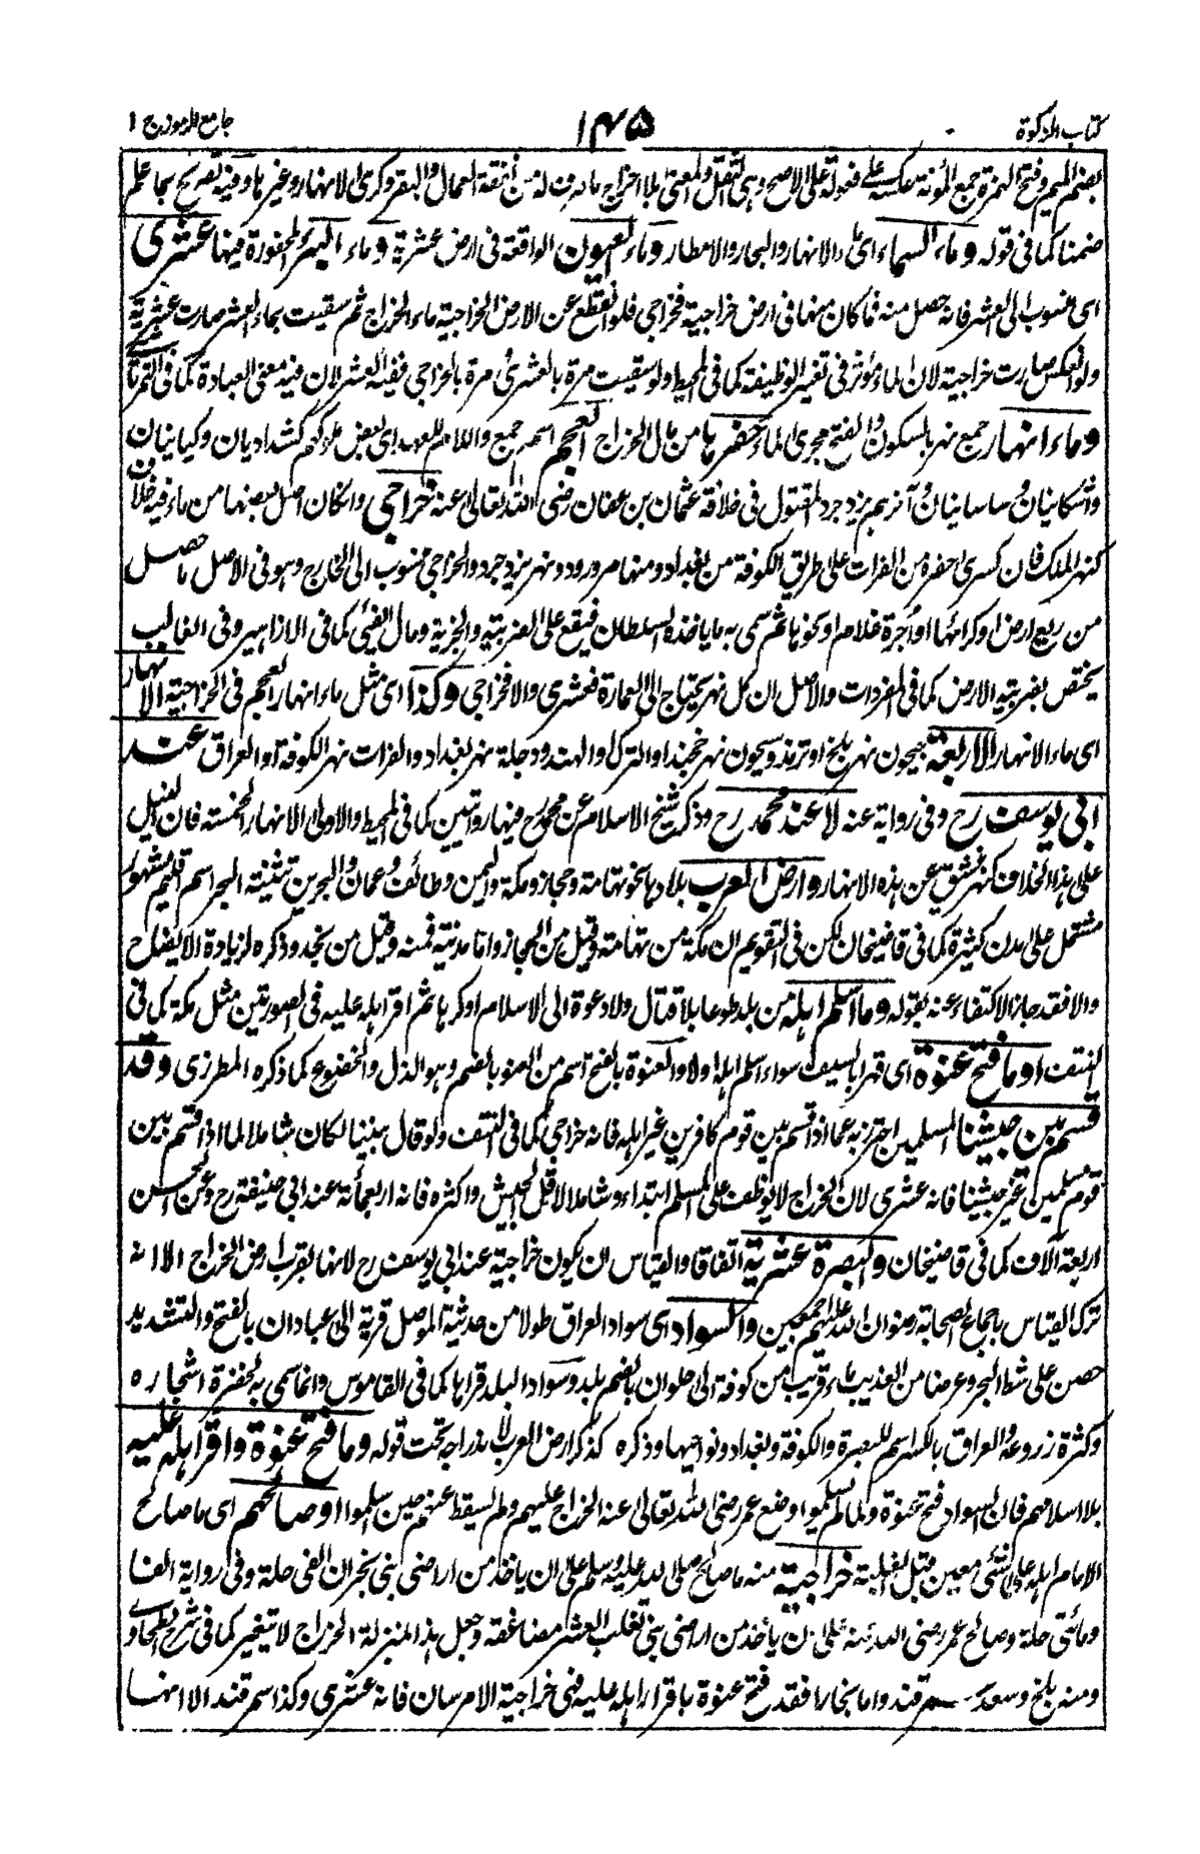 كتاب الزكوة ١٤٥ جامع الرموز ج ١
بضم الميم وفتح الهمزة جمع المؤنة على فعولة على الاصح وهي الثقل والمعنى بلا اخراج ما من نفقة العمال والبقر وكرى الانهار وغيرها وفيه تصريح بما علم
ضمنا كما في قوله وماء السماء اى ماء الانهار والبحار والامطار وماء العيون الواقعة فى ارض عشرية وماء البئر المحفورة فيها عشرى
اى منسوب الى العشر فانه حصل منه فما كان منها فى ارض خراجية فخراجي فلو انقطع عن الارض الخراجية ماء الخراج ثم سقيت بماء العشر صارت عشرية
ولو انعكس صارت خراجية لان الماء مؤثر فى تغير الوظيفة كما فى المحيط ولو سقيت مرة بالعشرى و مرة بالخراجي ففيه العشر لان فيه معنى العبادة كما فى التمرتاشى
وماء انهار جمع نهر بالسكون والفتح مجرى الماء حفرها من مال الخراج العجم اسم جمع واللام للعهد اى بعض ملوكهم كشداديان وكيانيان
واشكانيان وساسانيان وآخرهم يزدجرد المقتول فى خلافة عثمان بن عفان رضى الله تعالى عنه خراجي وان كان اصل بعضها من ماء فيه خلاف
كنهر الملك فان كسرى حفره من الفرات على طريق الكوفة من بغداد ومنها مرورود ونهر يزدجرد والخراجي منسوب الى الخارج وهو فى الاصل ما حصل
من ريع ارض وكرائها او اجرة غلام او نحوها ثم سمى به ما ياخذه السلطان فيقع على الضريبة والجزية ومال الفئ كما فى الازاهير وفى الغالب
يختص بضريبة الارض كما فى المفردات والاصل ان كل نهر يحتاج الى العمارة فعشرى والا فخراجي وكذا اى مثل ماء انهار العجم فى الخراجية الانهار
اى ماء الانهار الاربعة جيحون نهر بلخ او ترمذ وسيحون نهر خجند او الترك والهند ودجلة نهر بغداد والفرات نهر الكوفة او العراق عند
ابى يوسف رح وفى رواية عنه لا عند محمد رح وذكر شيخ الاسلام عن محمد رح فيها روايتين كما فى المحيط والاولى الانهار الخمسة فان النيل
على هذا الخلاف كنهر دمشق عن هذه الانهار وارض العرب بلادها نحو تهامة وحجاز ومكة واليمن وطائف وعمان والبحرين تثنية البحر اسم اقليم مشهور
مشتمل على مدن كثيرة كما فى قاضيخان لكن فى التقويم ان مكة من تهامة وقيل من الحجاز واما مدنية فمنه وقيل من نجد وذكره لزيادة الايضاح
والا فقد جاز الاكتفاء عنه بقوله وما اسلم اهله من بلد طوعا بلا قتال ولا دعوة الى الاسلام او كرها ثم اقر اهله عليه فى الصورتين مثل مكة كما فى
النتف او ما فتح عنوة اى قهرا بالسيف سواء اسلم اهله اولا والعنوة بالفتح اسم من العنو بالضم وهو الذل والخضوع كما ذكره المطرزى وقد
قسم بين جيشنا المسلمين احترز به عما اذا قسم بين قوم كافرين غير اهله فانه خراجي كما فى النتف ولو قال بيننا لكان شاملا لما اذا قسم بين
قوم مسلمين غير جيشنا فانه عشرى لان الخراج لا يوظف على المسلم ابتداء وشاملا لاقل الجيش واكثره فانه اربعمأئة عند ابى حنيفة رح وعن الحسن
اربعة آلاف كما فى قاضيخان والبصرة عشرية اتفاقا والقياس ان يكون خراجية عند ابى يوسف رح لانها بقرب ارض الخراج الا انه
ترك القياس باجماع الصحابة رضوان الله عليهم اجمعين والسواد اى سواد العراق طولا من حديثة الموصل قرية الى عبادان بالفتح والتشديد
حصن على شط البحر وعرضا من العذيب ماء قريب من كوفة الى حلوان بالضم بلد وسواد البلد قراها كما فى القاموس وانما سمى به لخضرة اشجاره
وكثرة زروعه والعراق بالكسر اسم للبصرة والكوفة وبغداد ونواحيها وذكره كذكر ارض العرب لاندراجه تحت قوله وما فتح عنوة واقر اهله عليه
بلا اسلامهم فان السواد فتح عنوة ولما لم يسلموا وضع عمر رضى الله تعالى عنه الخراج عليهم ولم يسقط عنهم حين اسلموا او صالحهم اى ما صالح
الامام اهله على شئ معين قبل الغلبة خراجية منه ما صالح صلى الله عليه وسلم على ان ياخذ من اراضى بنى نجران الفى حلة وفى رواية الفا
ومائتى حلة وصالح عمر رضى الله عنه على ان ياخذ من اراضى بنى تغلب العشر مضاعفة وجعل هذا بمنزلة الخراج لا تغير كما فى شرح الطحاوى
ومنه بلخ وسعد سمرقند واما بخارا فقد فتح عنوة باقرار اهله عليه فهى خراجية الا فانه عشرى وكذا سمرقند الا انها